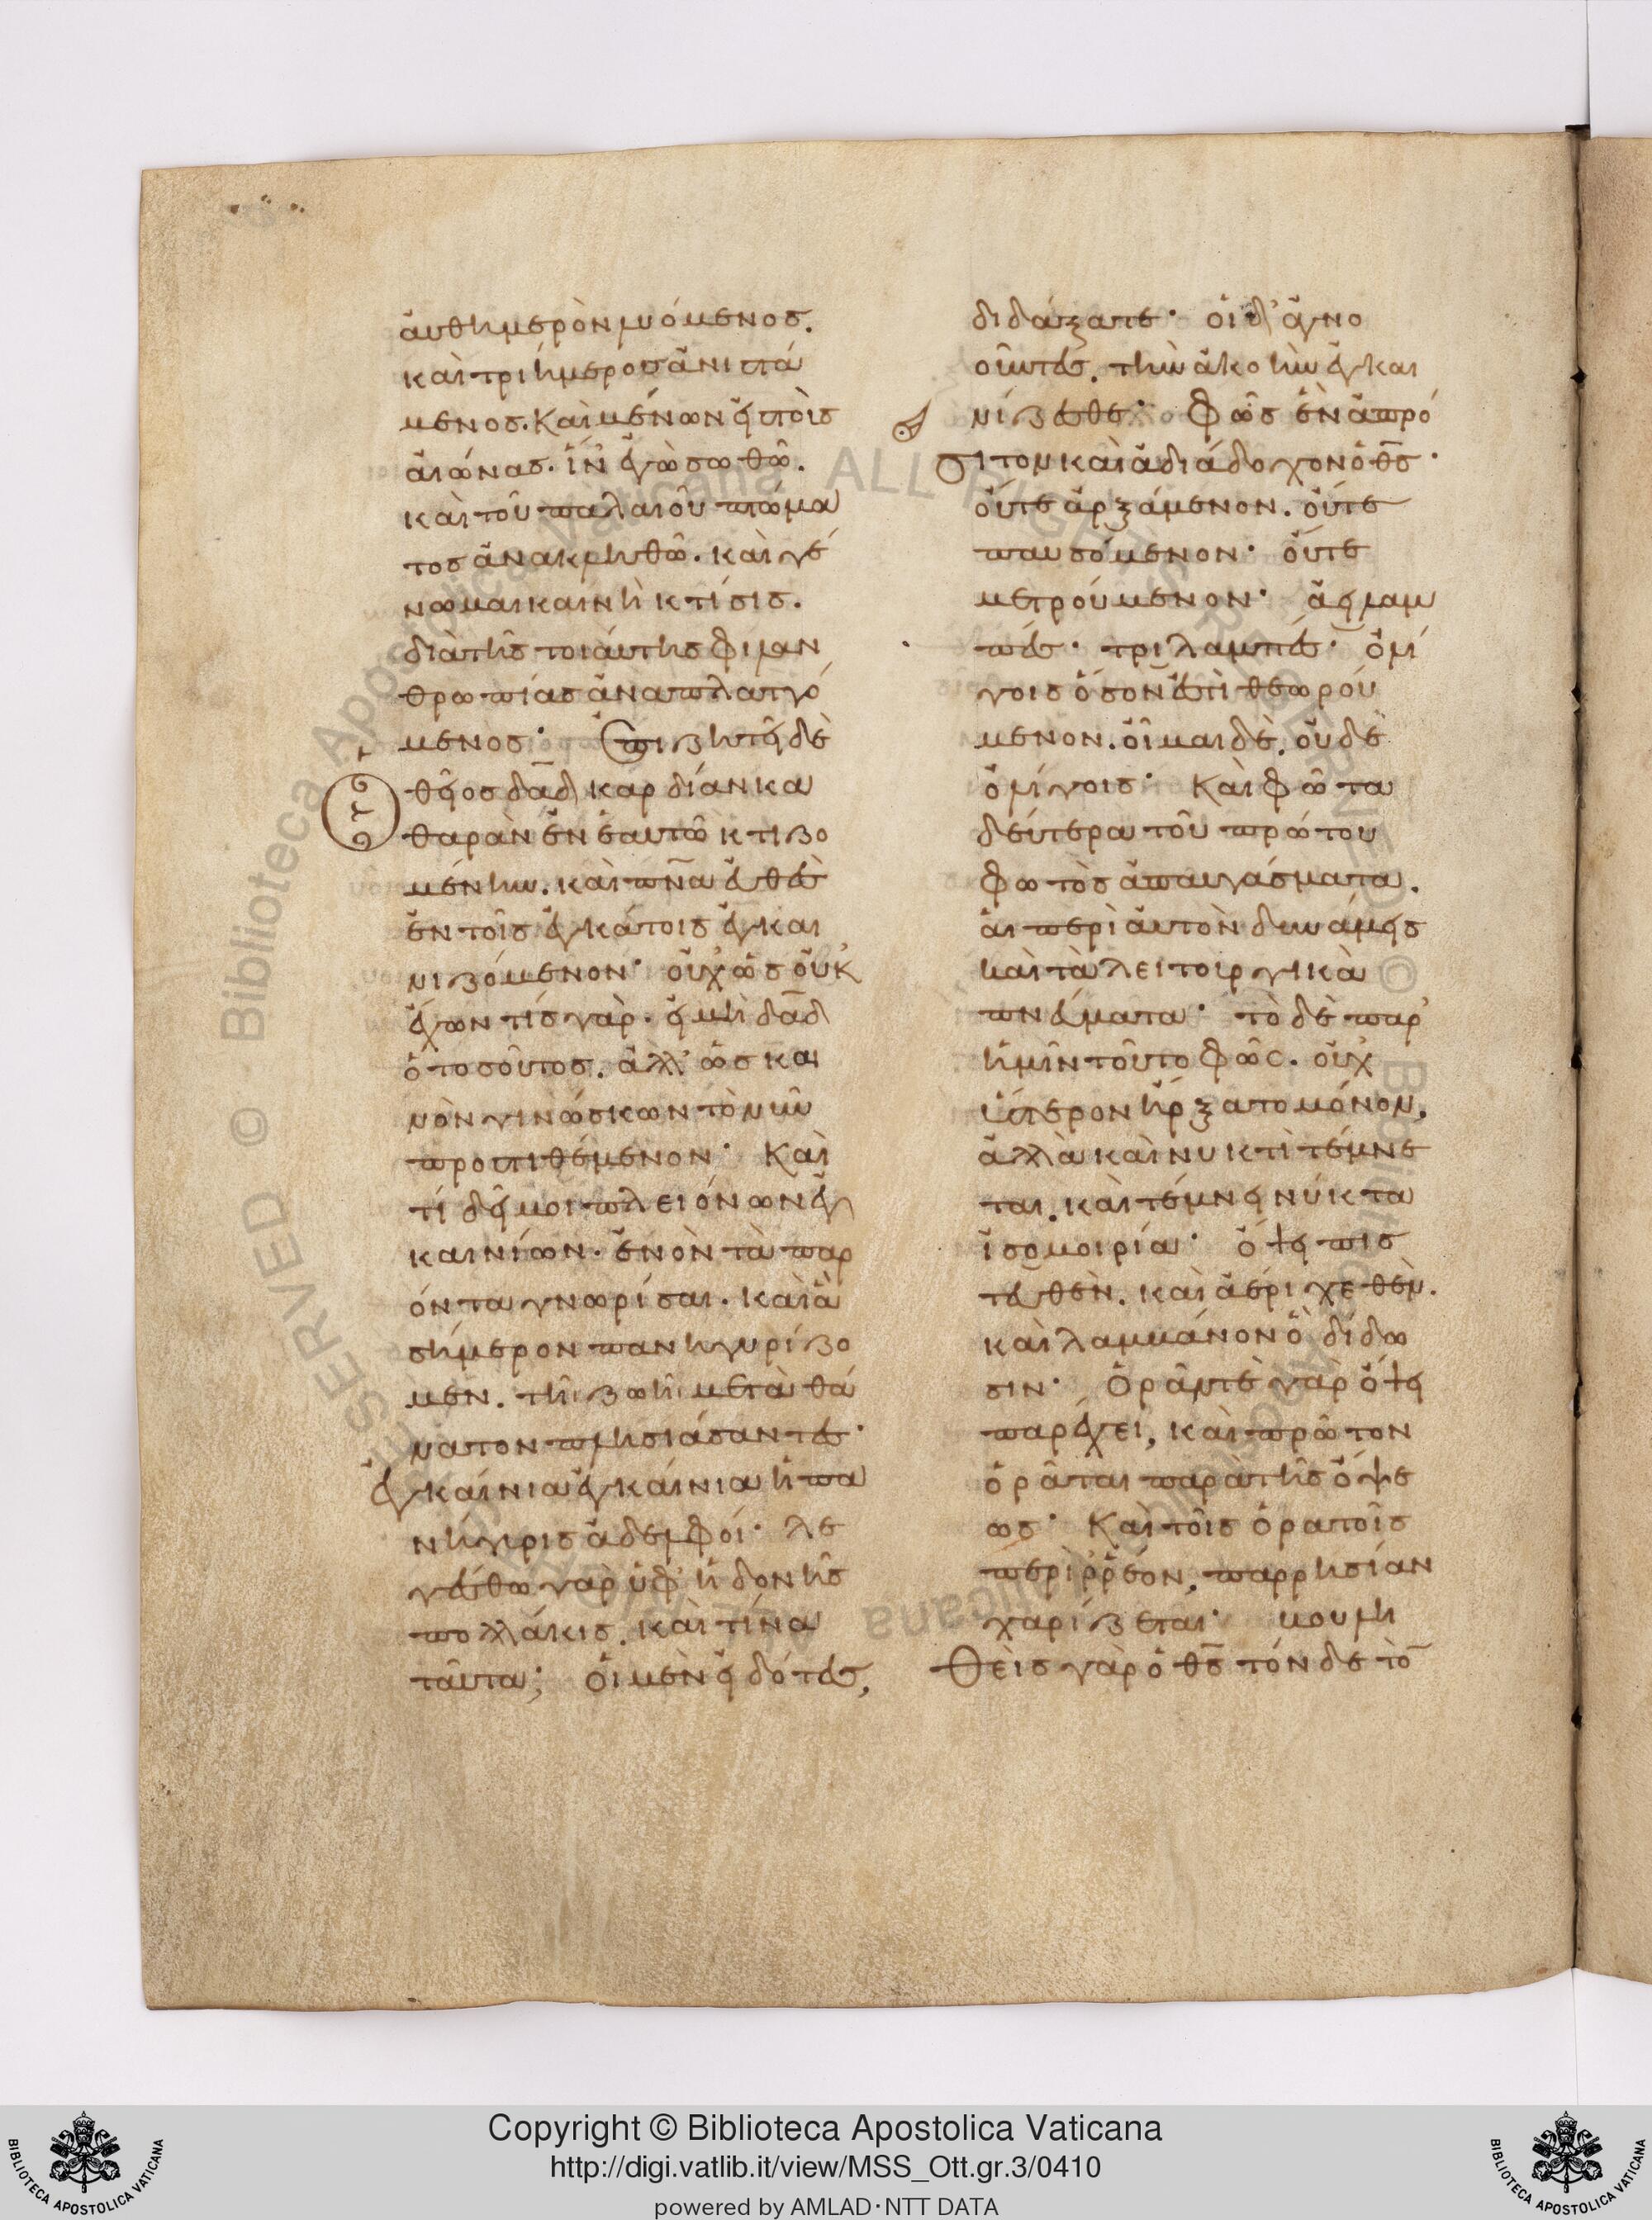 αὐθημερὸν λυόμενος.
καὶ τριήμερος ἀνιστά
μενος. Καὶ μένων εἰς τοὺς
αἰῶνας. ἵν' ἐγὼ σωθῶ.
καὶ τοῦ παλαιοῦ πτώμα
τος ἀνακληθῶ. καὶ γέ
νωμαι καινὴ κτίσις.
διὰ τῆς τοιαύτης φιλαν
θρωπίας ἀναπλαττό
μενος· Ἐπιζητεῖ δὲ
θεῖος δα̅δ καρδίαν κα
θαρὰν ἐν ἑαυτῶ κτιζο
μένην. καὶ πν̅α εὐθὲς
ἐν τοῖς ἐγκάτοις ἐγκαι
νιζόμενον· οὐχ' ὡς οὐκ
ἔχων τίς γὰρ. εἰ μὴ δα̅δ
ὁ τοσοῦτος. ἀλλ' ὡς και
νὸν γινώσκων τὸ νῦν
προστιθέμενον· Καὶ
τί δεῖ μοι πλειόνων ἐγ
καινίων. ἐνὸν τὰ παρ
όντα γνωρίσαι. καὶ ἃ
σήμερον πανηγυρίζο
μεν. τῆ ζωῆ μετὰ θά
νατον πλησιάσαντες·
Ἐγκαίνια ἐγκαίνια ἡ πα
νήγυρις ἀδελφοί· λε
γέσθω γὰρ ὑφ' ἡδονῆς
πολλάκις. καὶ τίνα
ταῦτα; Οἱ μὲν εἰδότες,
διδάξατε· οἱ δ' ἀγνο
οῦντες. τὴν ἀκοὴν ἐγκαι
νίζεσθε· Φῶς ἐν ἀπρό
σιτον καὶ ἀδιάδοχον ὁ θ̅ς·
οὔτε ἀρξάμενον. οὔτε
παυσόμενον· οὔτε
μετρούμενον· ἀειλαμ
πές· τριλαμπές· ὀλί
γοις ὅσον ἐστὶ θεωρού
μενον. οἶμαι δὲ. οὐδὲ
ὀλίγοις· Καὶ φῶτα
δεύτερα τοῦ πρώτου
φωτὸς ἀπαυγάσματα.
αἱ περὶ αὐτὸν δυνάμεις
καὶ τὰ λειτουργικὰ
πνεύματα· τὸ δὲ παρ'
ἡμῖν τοῦτο φῶς. οὐχ
ὕστερον ἤρξατο μόνον,
ἀλλὰ καὶ νυκτὶ τέμνε
ται. καὶ τέμνει νύκτα
ἰσομοιρία· ὄψει πισ
τευθὲν. καὶ ἀέρι χεθὲν.
καὶ λαμβάνον ὃ δίδω
σιν· Ὁρᾶν τὲ γὰρ ὄψει
παρέχει, καὶ πρῶτον
ὁρᾶται παρὰ τῆς ὄψε
ως· Καὶ τοῖς ὁρατοῖς
περὶρρέον. παρρησίαν
χαρίζεται· Βουλη
Θεὶς γὰρ ὁ θ̅ς τόνδε τὸ̅
Copyright © Biblioteca Apostolica Vaticana
http://digi.vatlib.it/view/MSS_Ott.gr.3/0410
powered by AMLAD·NTT DATA